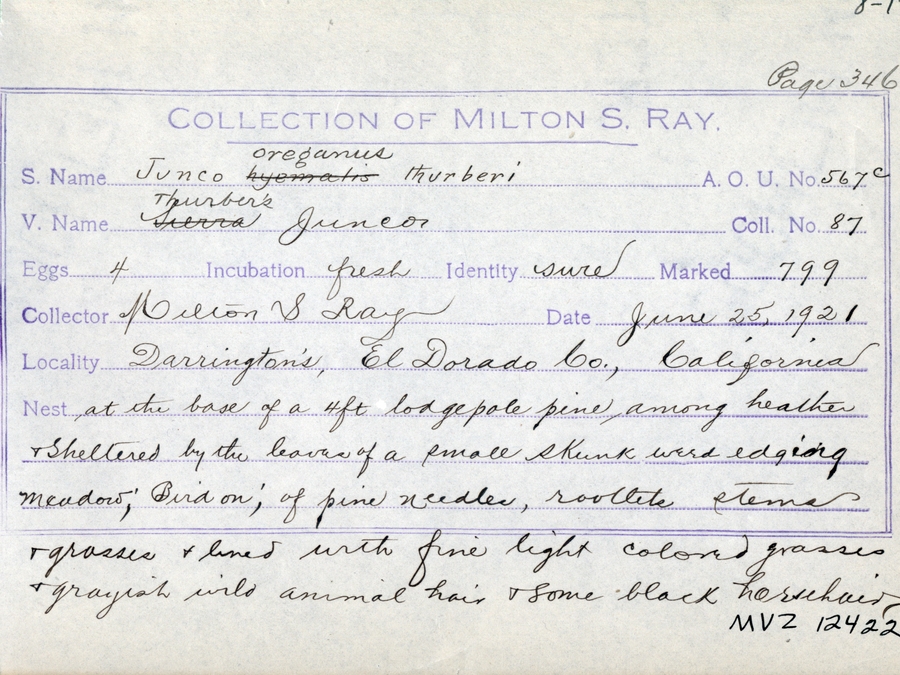 8-1
Page 346
COLLECTION OF MILTON S. RAY.
oreganus
S. Name Junco hyemalis thurberi A. O. U. No. 567c
Thurber's
V. Name Sierra Junco Coll. No. 87
Eggs 4 Incubation fresh Identity sure Marked 799
Collector Milton S Ray Date June 25, 1921
Locality Darrington's, El Dorado Co., California
Nest at the base of a 4ft lodgepole pine, among heather
+ sheltered by the leaves of a small skunk weed edging
meadow; 'Bird on'; of pine needles, rootlets stems
+ grasses + lined with fine light colored grasses
+ grayish wild animal hair + some black horsehair
MVZ 12422